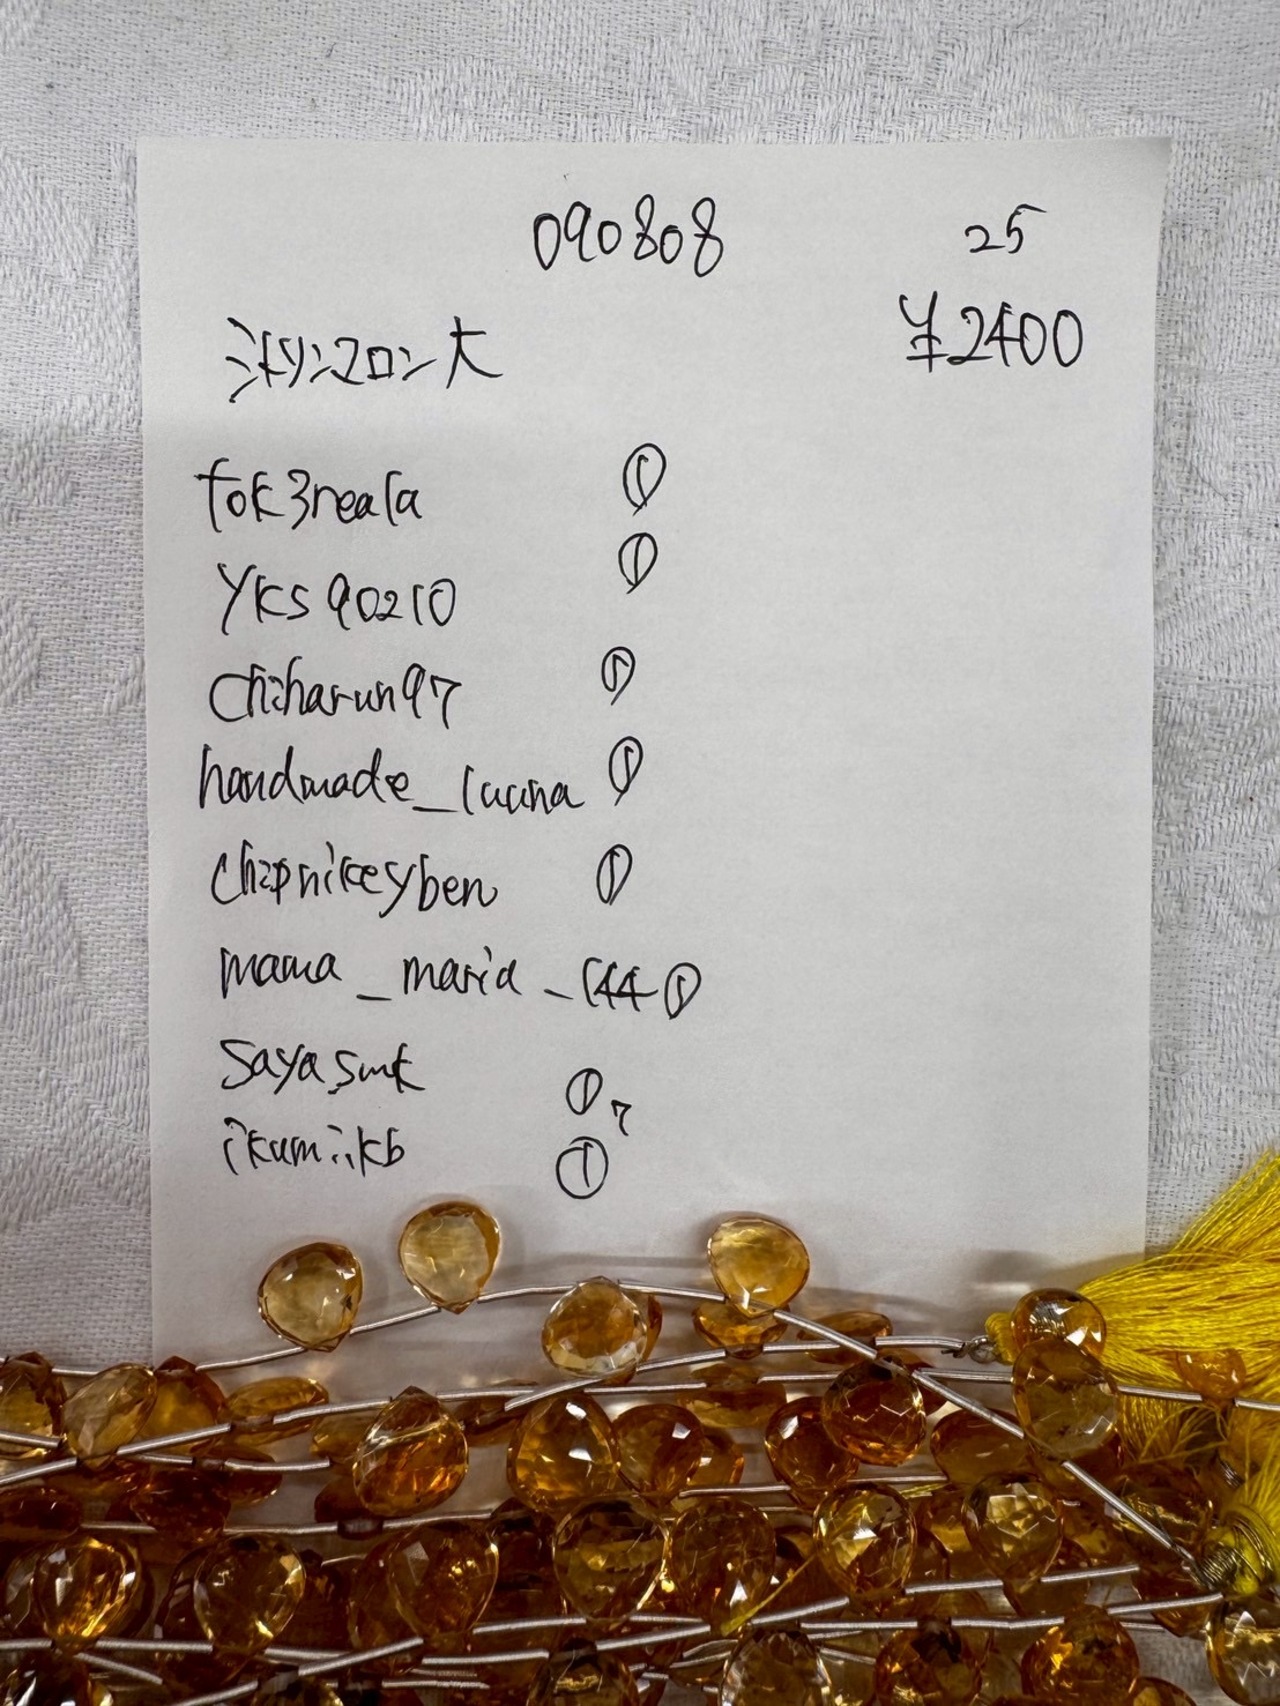 090808 25
¥2400
シトリンマロン大
tok3reala ①
yks90210 ①
chiharun97 ①
handmade_luuna ①
chipnikeyben ①
mama_maria_144 ①
sayasmk ① 7
ikumiikb ①